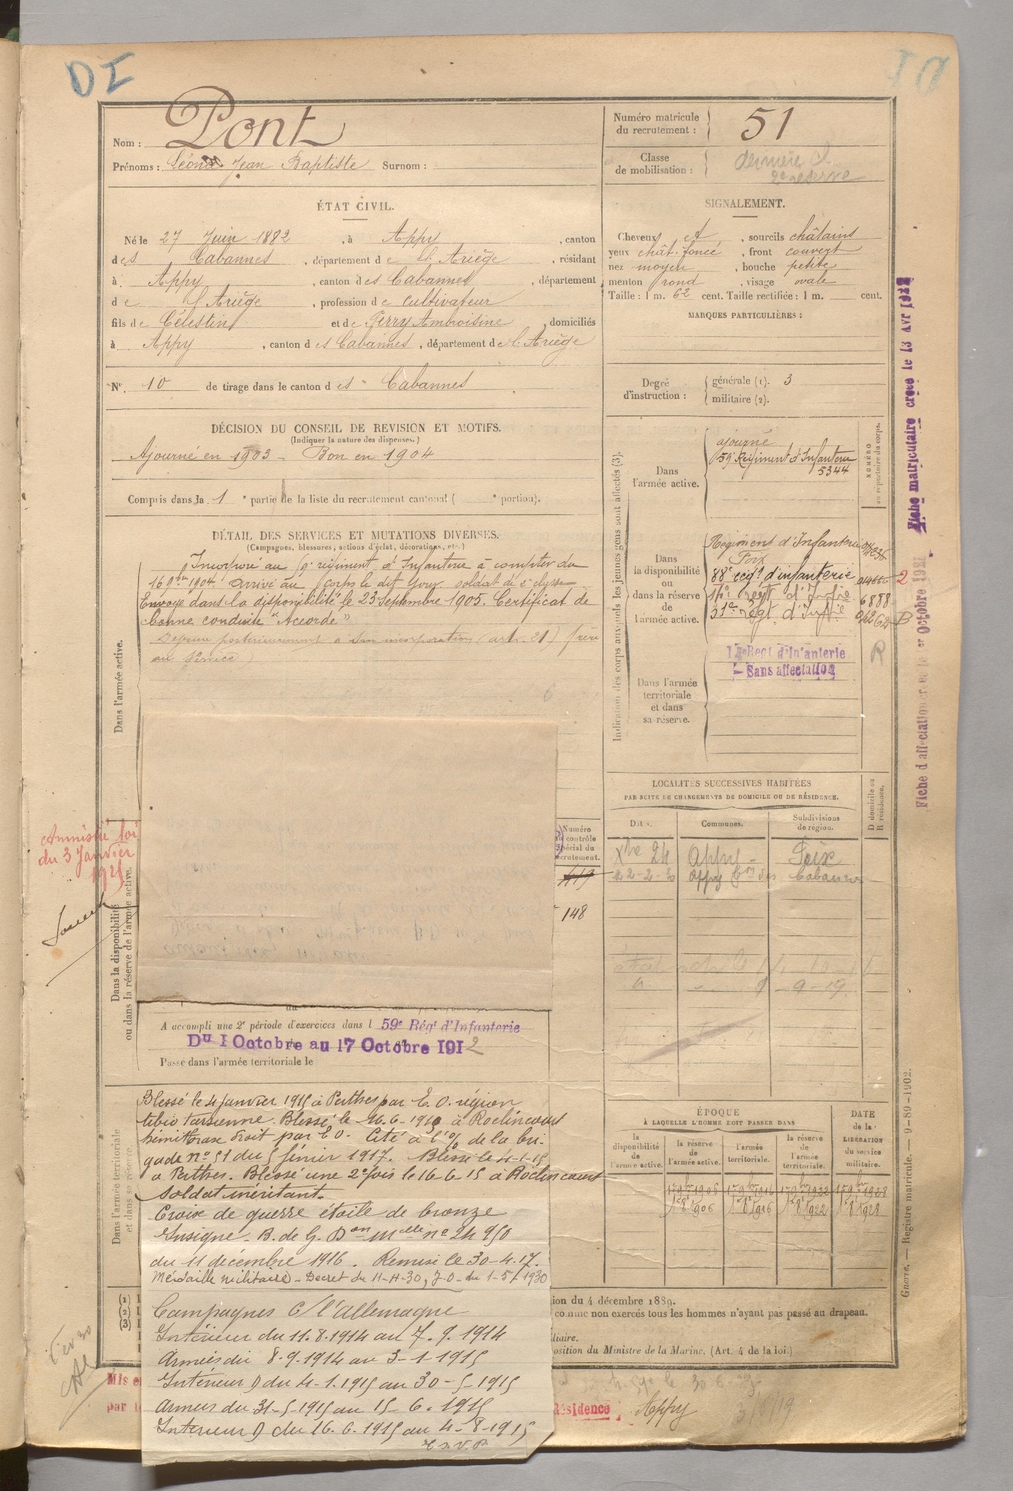 DI
Nom : Pont
Prénoms : Léon Jean Baptiste Surnom :
ÉTAT CIVIL.
Né le 27 Juin 1882, à Appy, canton
des Cabannes, département de l'Ariège, résidant
à Appy, canton des Cabannes, département
de l'Ariège, profession de Cultivateur
fils de Célestin et de Ferry Ambroisine, domiciliés
à Appy, canton des Cabannes, département de l'Ariège
N° 10 de tirage dans le canton des Cabannes
DÉCISION DU CONSEIL DE REVISION ET MOTIFS.
(Indiquer la nature des dispenses.)
Ajourné en 1903 - Bon en 1904
Compris dans la 1e partie de la liste du recrutement cantonal ( e portion).
DÉTAIL DES SERVICES ET MUTATIONS DIVERSES.
(Campagnes, blessures, actions d'éclat, décorations, etc.)
Incorporé au régiment d'Infanterie à compter du
16 9bre 1904. Arrivé au corps le dit jour. soldat de 2e classe
Envoyé dans la disponibilité le 23 Septembre 1905. Certificat de
bonne conduite "Accordé"
au service)
Dans l'armée active.
Amnistié loi
du 3 Janvier
1925
Dans la disponibilité
ou dans la réserve de l'armée active.
Numéro
du contrôle
spécial du
recrutement.
148
A accompli une 2e période d'exercices dans l 59e Régt d'Infanterie
Du 1 Octobre au 17 Octobre 1912
Passé dans l'armée territoriale le
Dans l'armée territoriale
et dans sa réserve
Blessé le 4 janvier 1915 à Perthes par E. O. région
tibio tarsienne. Blessé le 16.6.1915 à Roclincourt
hémithorax droit par E O. Cité à l'o/ de la bri-
gade n° 51 du 5 février 1917. Blessé le 4-1-15
à Perthes. Blessé une 2e fois le 16-6-15 à Roclincourt
Soldat méritant.
Croix de guerre étoile de bronze
Insigne. B. de G. Don Melle n° 24 950
du 11 décembre 1916. Remise le 30-4-17.
Médaille militaire - Decret du 11-4-30, J-O- du 1-5-1930
Campagnes C/ l'Allemagne
Intérieur du 11.8.1914 au 7.9.1914
Armées du 8-9-1914 au 3-1-1915
Intérieur D du 4-1.1915 au 30-5-1915
Armées du 31-5-1915 au 15-6.1915
Interieur D du 16.6.1915 au 4-8-1915
T.S.V.P.
Numéro matricule
du recrutement : 51
Classe
de mobilisation : dernière Cl
2e réserve
SIGNALEMENT.
Cheveux et, sourcils châtains
yeux chât. foncé, front couvert
nez moyen, bouche petite
menton rond, visage ovale
Taille : 1 m. 62 cent. Taille rectifiée : 1 m. cent.
MARQUES PARTICULIÈRES :
Degré
d'instruction :
générale (1). 3
militaire (2).
Indication des corps auxquels les jeunes gens sont affectés (3).
NUMÉRO
au répertoire du corps.
Dans
l'armée active.
ajourné
159 Régiment d'Infanterie
5344
Dans
la disponibilité
ou
dans la réserve
de
l'armée active.
Régiment d'Infanterie
Foix
88e regt d'infanterie
regt d'Inftie 6888
regt d'Inftie
R
Régt d'Infanterie
Sans affectation
Dans l'armée
territoriale
et dans
sa réserve.
LOCALITÉS SUCCESSIVES HABITÉES
PAR SUITE DE CHANGEMENTS DE DOMICILE OU DE RÉSIDENCE.
Dates. Communes. Subdivisions de région. D domicile ou R résidence.
Xbre 24 Appy - Foix
22-2-3 Appy Con des Cabannes
ÉPOQUE
À LAQUELLE L'HOMME DOIT PASSER DANS
DATE
de la
LIBÉRATION
du service
militaire.
la disponibilité de l'armée active. la réserve de l'armée active. l'armée territoriale. la réserve de l'armée territoriale.
1er 8bre 1906 1er 8bre 1916 1er 8bre 1922 1er 8bre 1928
tion du 4 décembre 1889.
comme non exercés tous les hommes n'ayant pas passé au drapeau.
position du Ministre de la Marine. (Art. 4 de la loi.)
Mis e
par l
Résidence Appy
Fiche matriculaire créée le 13 Avr
Fiche d'affectation créée le 1er Octobre 1921
Guerre. — Registre matricule. — 9-89-1902.